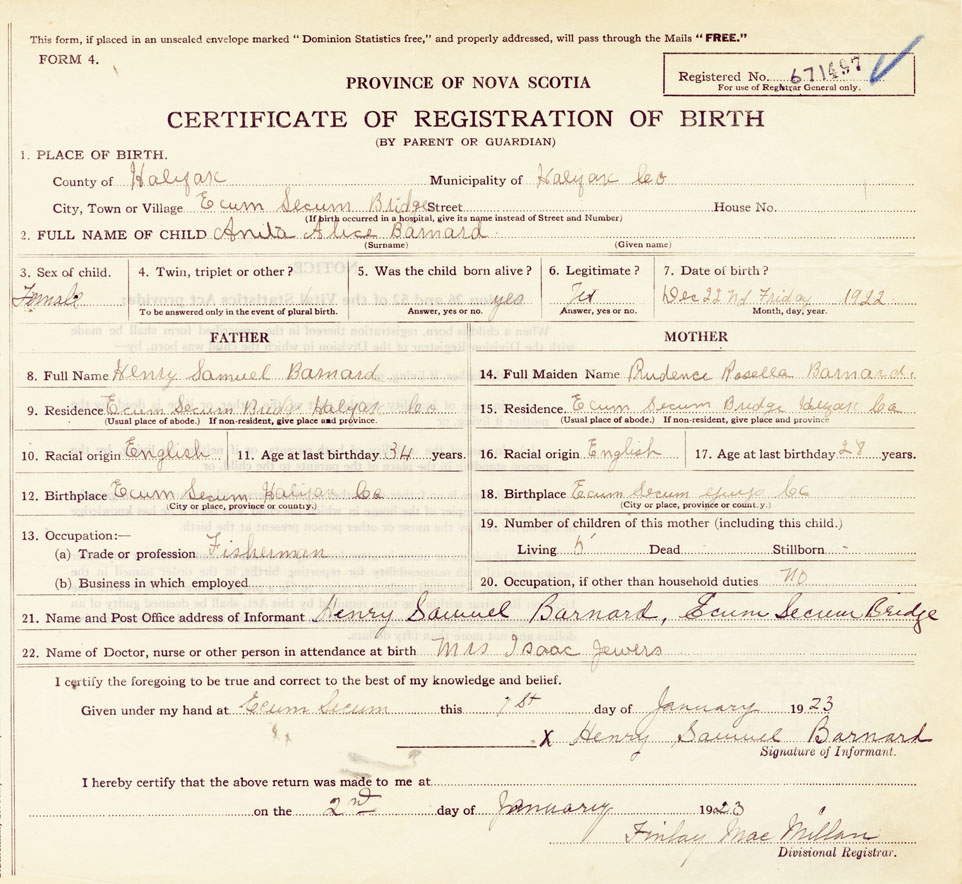 This form, if placed in an unsealed envelope marked "Dominion Statistics free," and properly addressed, will pass through the Mails "FREE."
FORM 4.
PROVINCE OF NOVA SCOTIA
Registered No. 671497
For use of Registrar General only.
CERTIFICATE OF REGISTRATION OF BIRTH
(BY PARENT OR GUARDIAN)
1. PLACE OF BIRTH.
County of Halifax Municipality of Halifax Co
City, Town or Village Ecum Secum Bridge Street House No.
(If birth occurred in a hospital, give its name instead of Street and Number)
2. FULL NAME OF CHILD Anita Alice Barnard
(Surname) (Given name)
3. Sex of child. 4. Twin, triplet or other? 5. Was the child born alive? 6. Legitimate? 7. Date of birth?
Female yes Yes Dec 22nd Friday 1922
To be answered only in the event of plural birth. Answer, yes or no. Answer, yes or no. Month, day, year.
FATHER MOTHER
8. Full Name Henry Samuel Barnard 14. Full Maiden Name Prudence Rosella Barnard.
9. Residence Ecum Secum Bridge Halifax Co 15. Residence. Ecum Secum Bridge Halifax Co
(Usual place of abode.) If non-resident, give place and province. (Usual place of abode.) If non-resident, give place and province
10. Racial origin English 11. Age at last birthday 34 years. 16. Racial origin English 17. Age at last birthday 28 years.
12. Birthplace Ecum Secum Halifax Co 18. Birthplace Ecum Secum Co
(City or place, province or country.) (City or place, province or country.)
13. Occupation:— 19. Number of children of this mother (including this child.)
(a) Trade or profession Fisherman Living 5 Dead Stillborn -
(b) Business in which employed 20. Occupation, if other than household duties No
21. Name and Post Office address of Informant Henry Samuel Barnard, Ecum Secum Bridge
22. Name of Doctor, nurse or other person in attendance at birth Mrs Isaac Jewers
I certify the foregoing to be true and correct to the best of my knowledge and belief.
Given under my hand at Ecum Secum this 1st day of January 1923
X Henry Samuel Barnard
Signature of Informant.
I hereby certify that the above return was made to me at
on the 2nd day of January 1923
Finlay Mac Millan
Divisional Registrar.